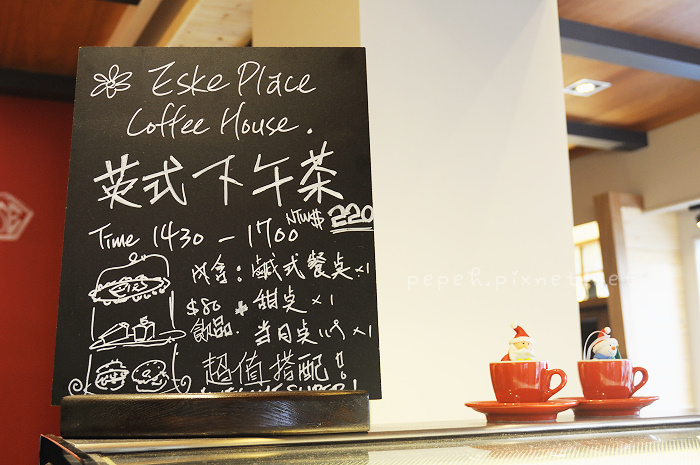 Eske Place
Coffee House.
英式下午茶
Time 1430 - 1700 NTW$ 220
內含: 鹹式餐点 x1
$80 * 甜点 x1
飲品. 当日点心 x1
超值搭配!
pepeh.pixnet.ne